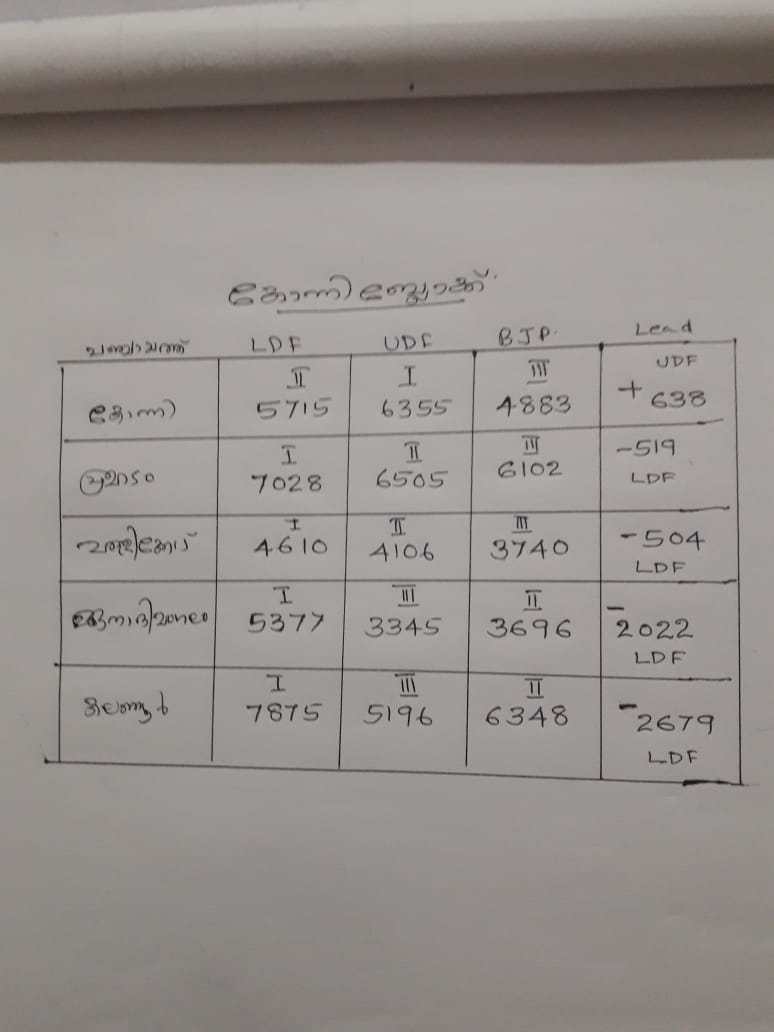 കോന്നി ബ്ലോക്ക്
പഞ്ചായത്ത് LDF UDF BJP. Lead
II I III UDF
കോന്നി 5715 6355 4883 + 638
I II III -519
പ്രമാടം 7028 6505 6102 LDF
I II III
വള്ളിക്കോട് 4610 4106 3740 -504
LDF
I III II
ഏനാദിമംഗലം 5377 3345 3696 -2022
LDF
I III II
കലഞ്ഞൂർ 7875 5196 6348 -2679
LDF